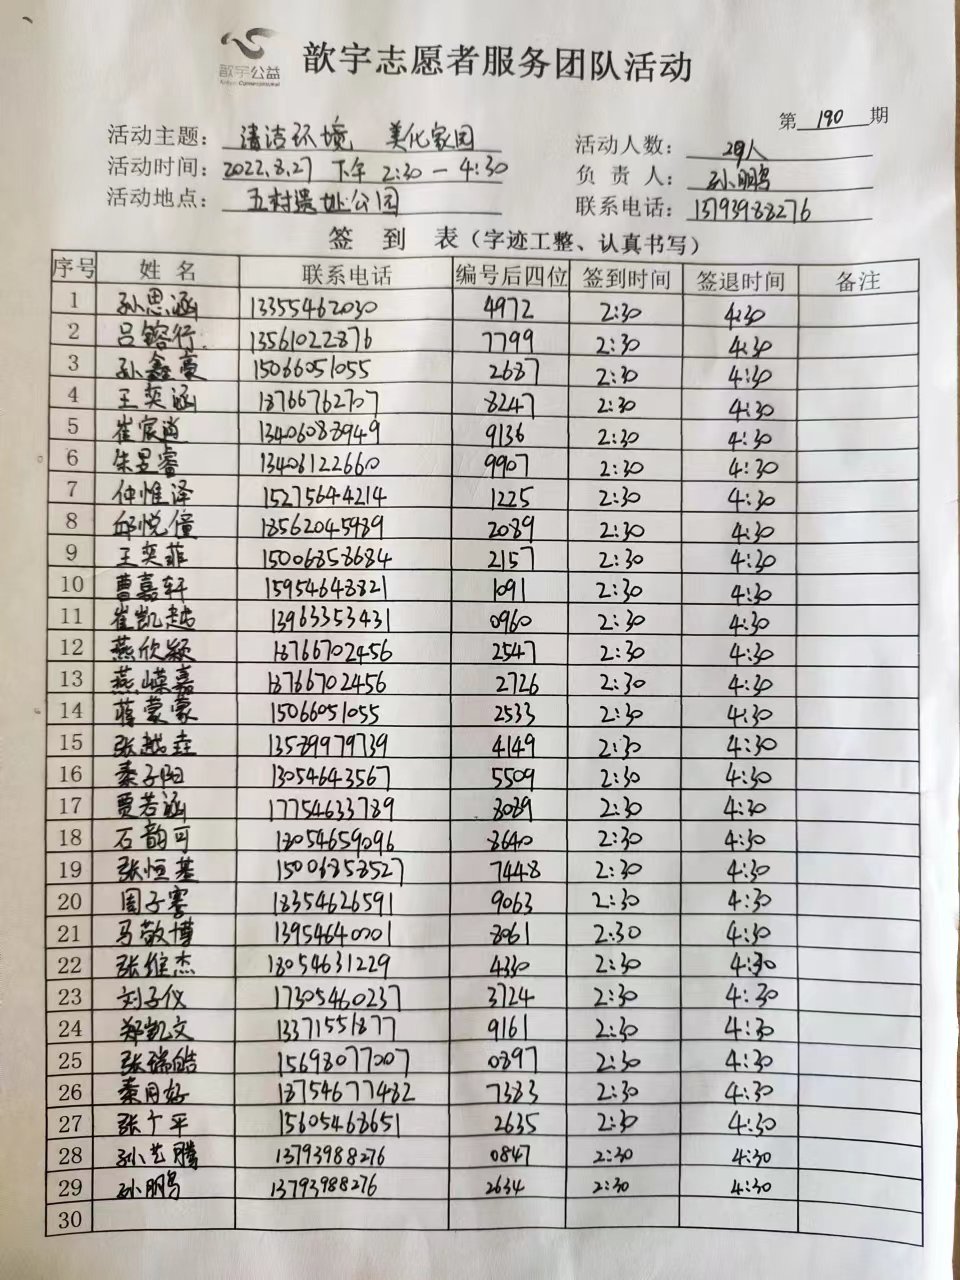 歆宇公益
歆宇志愿者服务团队活动
第 190 期
活动主题: 清洁环境 美化家园
活动人数: 29人
活动时间: 2022.8.27 下午 2:30 — 4:30
负责人: 孙鹏
活动地点: 五村遗址公园
联系电话: 13793988276
签到表(字迹工整、认真书写)
序号 姓名 联系电话 编号后四位 签到时间 签退时间 备注
1 孙思涵 13355462030 4972 2:30 4:30
2 吕镕行 13561022876 7799 2:30 4:30
3 孙鑫豪 15066051055 2687 2:30 4:30
4 王奕涵 18766762707 8247 2:30 4:30
5 崔宸 13406088949 9136 2:30 4:30
6 朱昱睿 13406122660 9907 2:30 4:30
7 仲惟泽 15275644214 1225 2:30 4:30
8 邱悦僮 18562045989 2089 2:30 4:30
9 王奕菲 15006858684 2157 2:30 4:30
10 曹嘉轩 15954648821 1091 2:30 4:30
11 崔凯越 13963353431 0960 2:30 4:30
12 燕欣颖 18766702456 2547 2:30 4:30
13 燕嵘嘉 18766702456 2726 2:30 4:30
14 蒋蒙蒙 15066051055 2533 2:30 4:30
15 张越垚 13589979739 4149 2:30 4:30
16 秦子阳 13054643567 5509 2:30 4:30
17 贾若涵 17754633789 8089 2:30 4:30
18 石韵可 18054659096 8640 2:30 4:30
19 张恒基 15006858527 7448 2:30 4:30
20 周子骞 18354626591 9063 2:30 4:30
21 马敬博 13954640001 8061 2:30 4:30
22 张维杰 18054631229 4330 2:30 4:30
23 刘子仪 17305460237 3724 2:30 4:30
24 郑凯文 13371551877 9161 2:30 4:30
25 张瑞皓 15698077007 0897 2:30 4:30
26 秦月好 18754677482 7383 2:30 4:30
27 张广平 15605468651 2635 2:30 4:30
28 孙艺腾 13793988276 0847 2:30 4:30
29 孙鹏 13793988276 2634 2:30 4:30
30